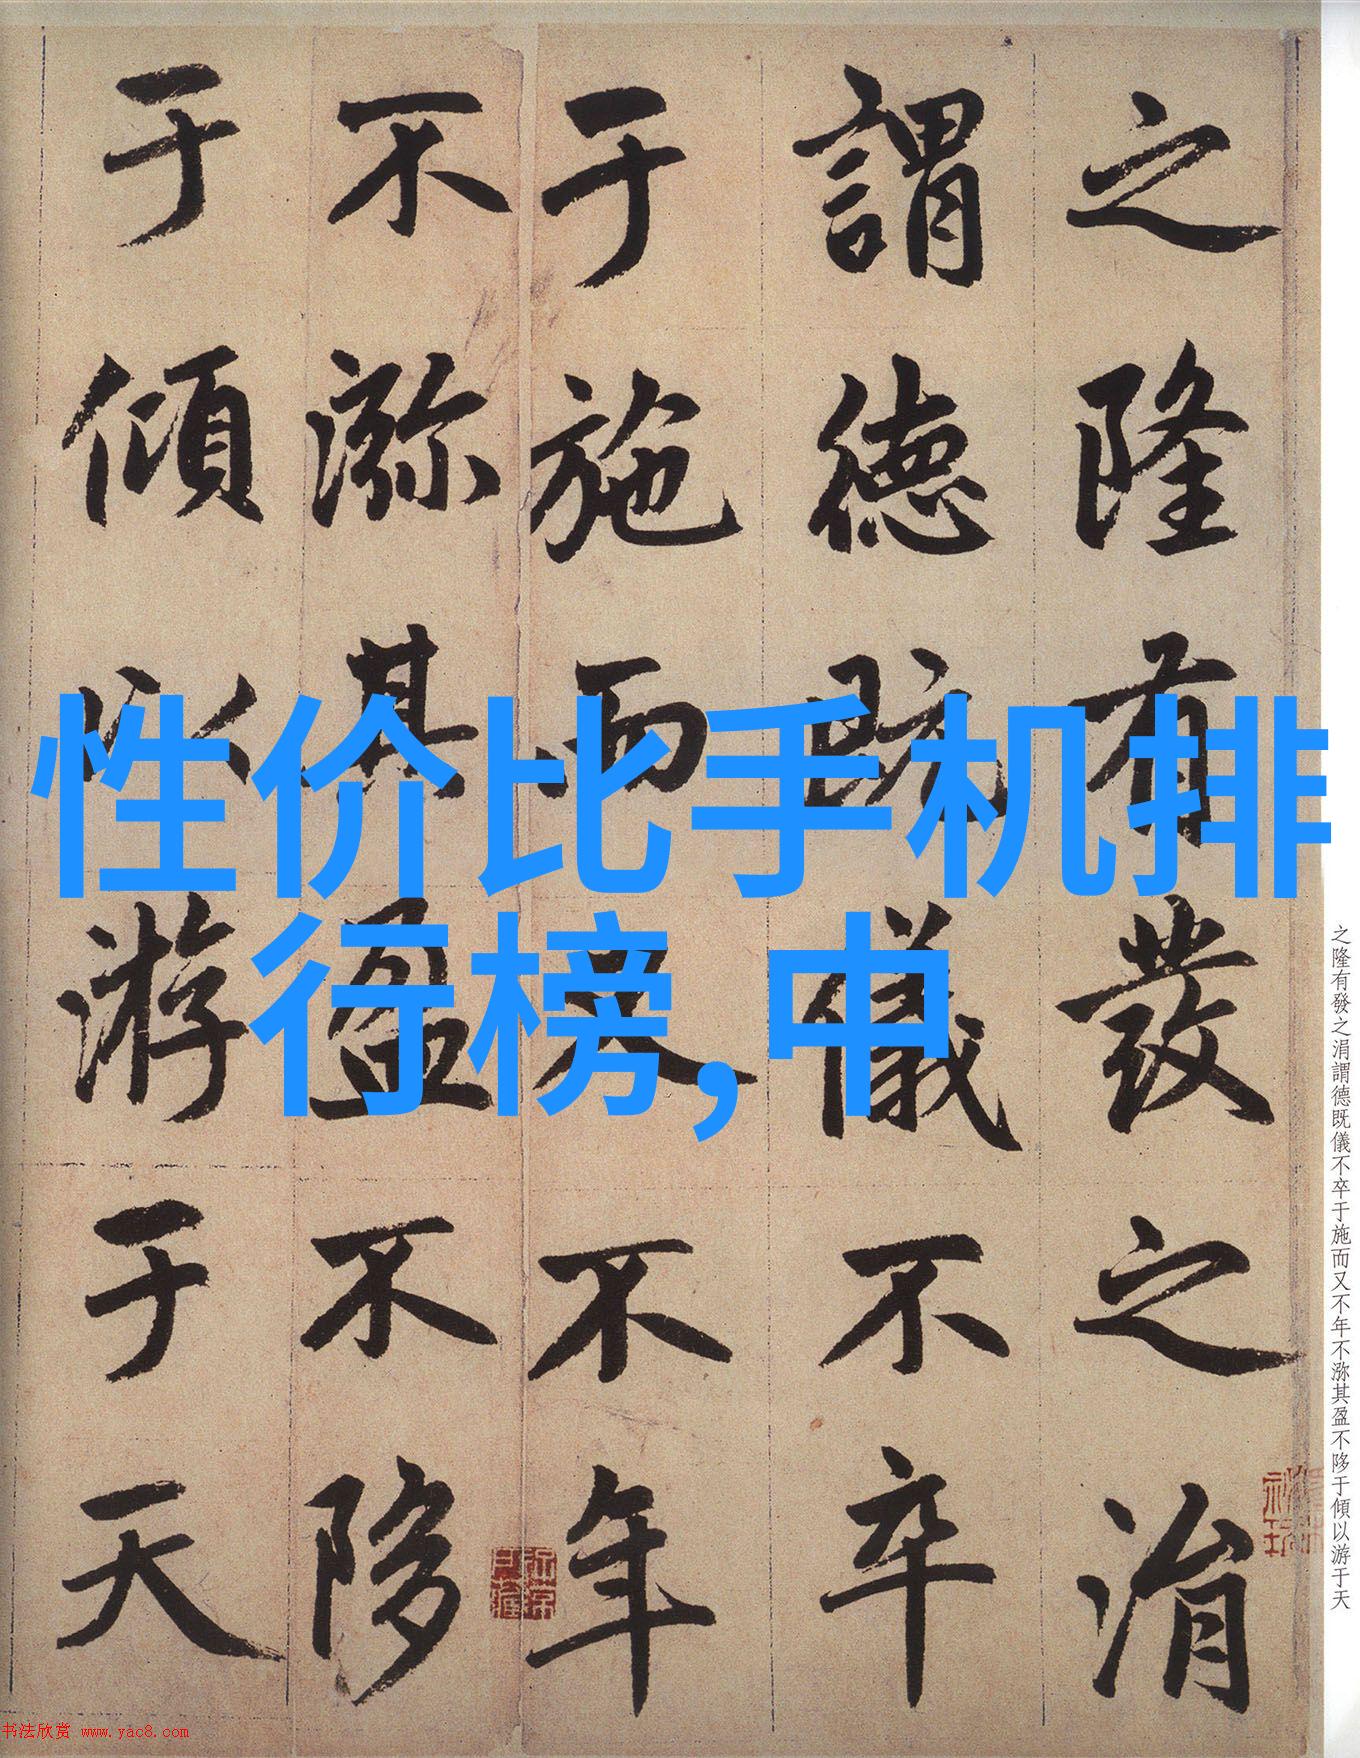 之隆有發之涓
謂德既儀不卒
于施而又不年
不㳽其盈不陊
于傾以游于天
性价比手机排
行榜,中
之隆有發之涓謂德既儀不卒于施而又不年不㳽其盈不陊于傾以游于天
书法欣赏 www.yac8.com